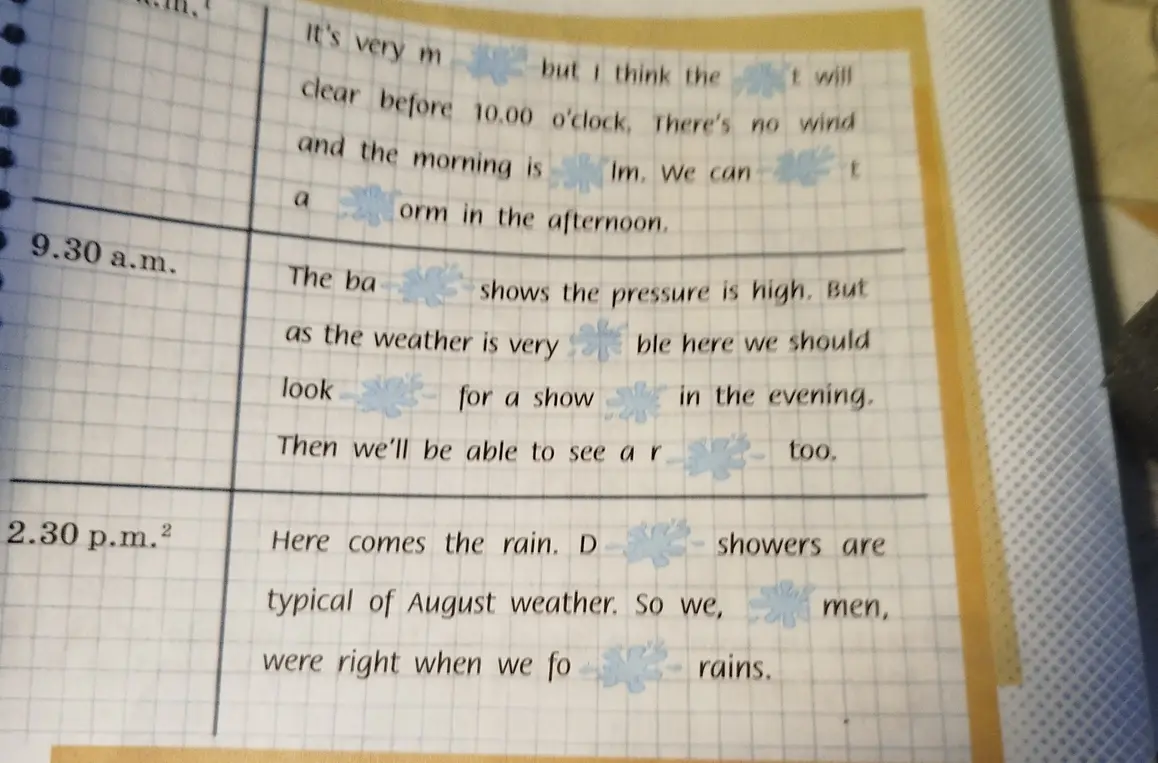 It's very m but I think the t will
clear before 10.00 o'clock. There's no wind
and the morning is lm. We can t
a orm in the afternoon.
9.30 a.m.
The ba shows the pressure is high. But
as the weather is very ble here we should
look for a show in the evening.
Then we'll be able to see a r too.
2.30 p.m.²
Here comes the rain. D showers are
typical of August weather. So we, men,
were right when we fo rains.